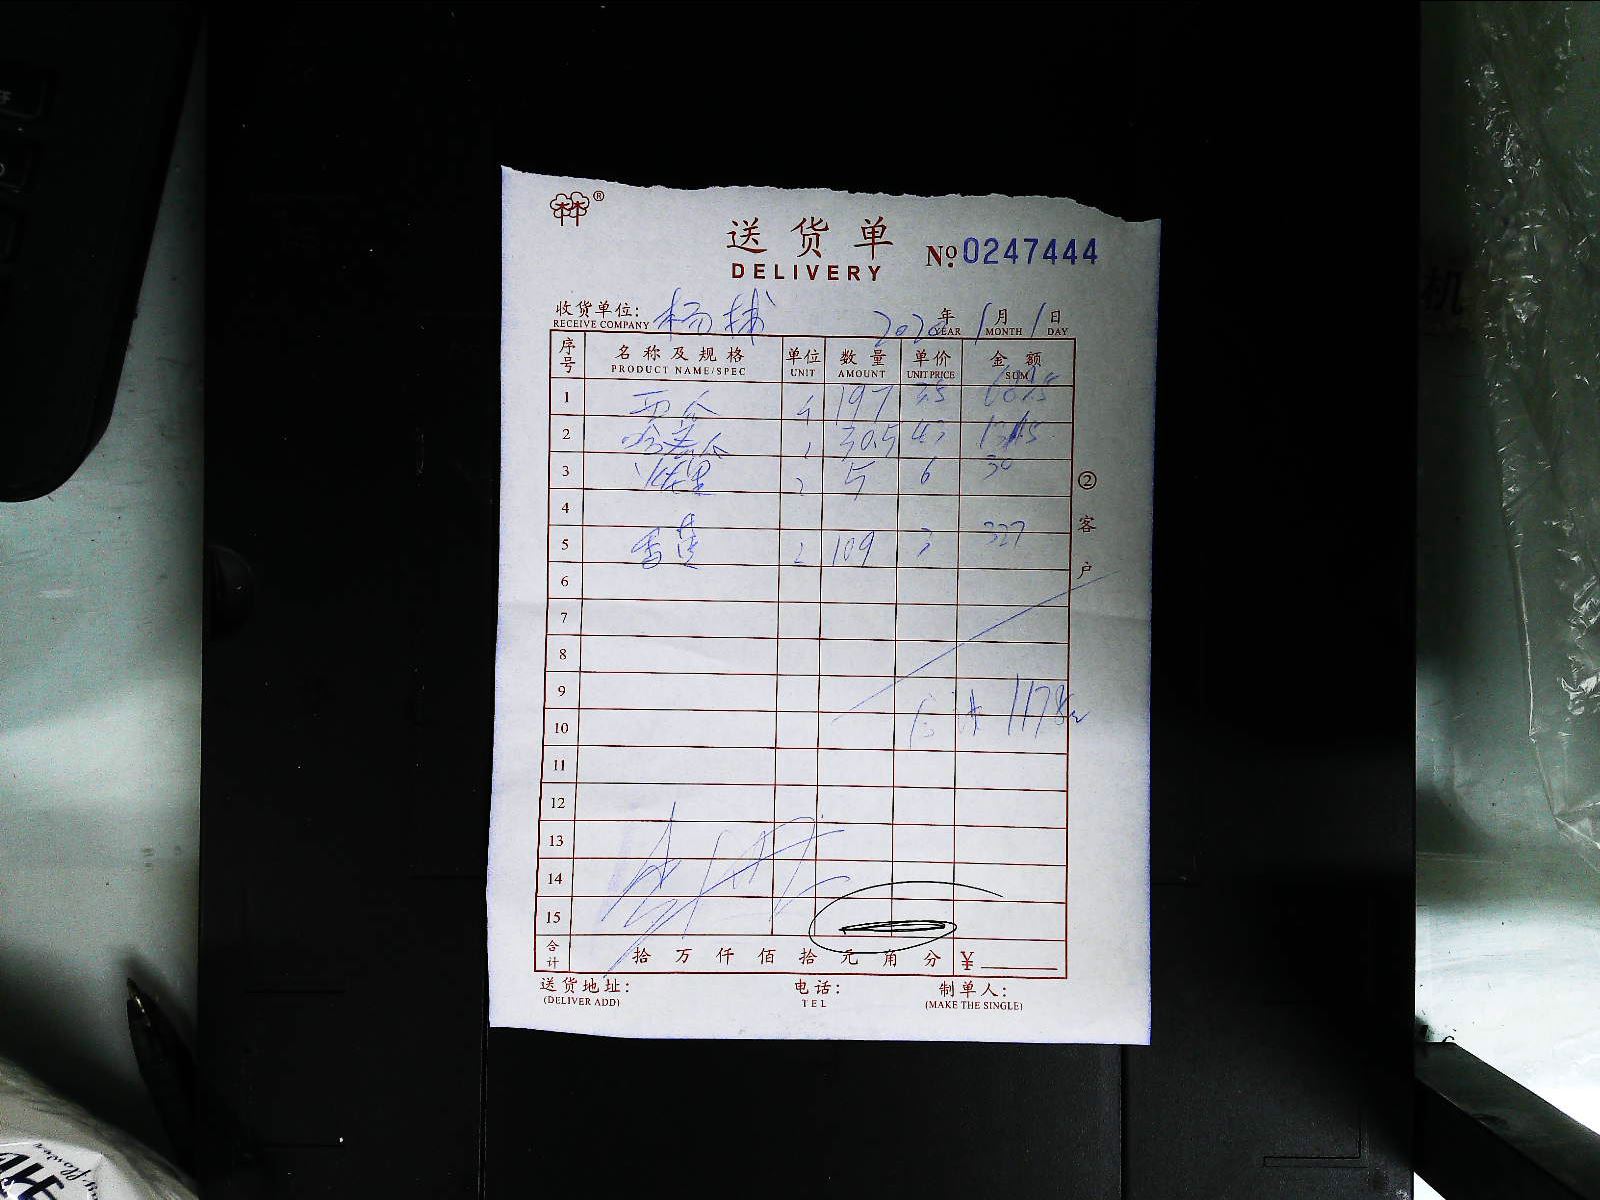 ®
送货单 №0247444
DELIVERY
收货单位: 杨 2020年1月1日
RECEIVE COMPANY YEAR MONTH DAY
序号 名称及规格 单位 数量 单价 金额
PRODUCT NAME/SPEC UNIT AMOUNT UNIT PRICE SUM
1 西瓜 4 197 3.5
2 哈密瓜 1 30.5 43
3 2 5 6 30
4
5 香蕉 2 109 3 327
6
7
8
9
10 合计 1178
11
12
13
14
15
合计 拾 万 仟 佰 拾 元 角 分 ¥
送货地址: 电话: 制单人:
(DELIVER ADD) TEL (MAKE THE SINGLE)
②客户
机